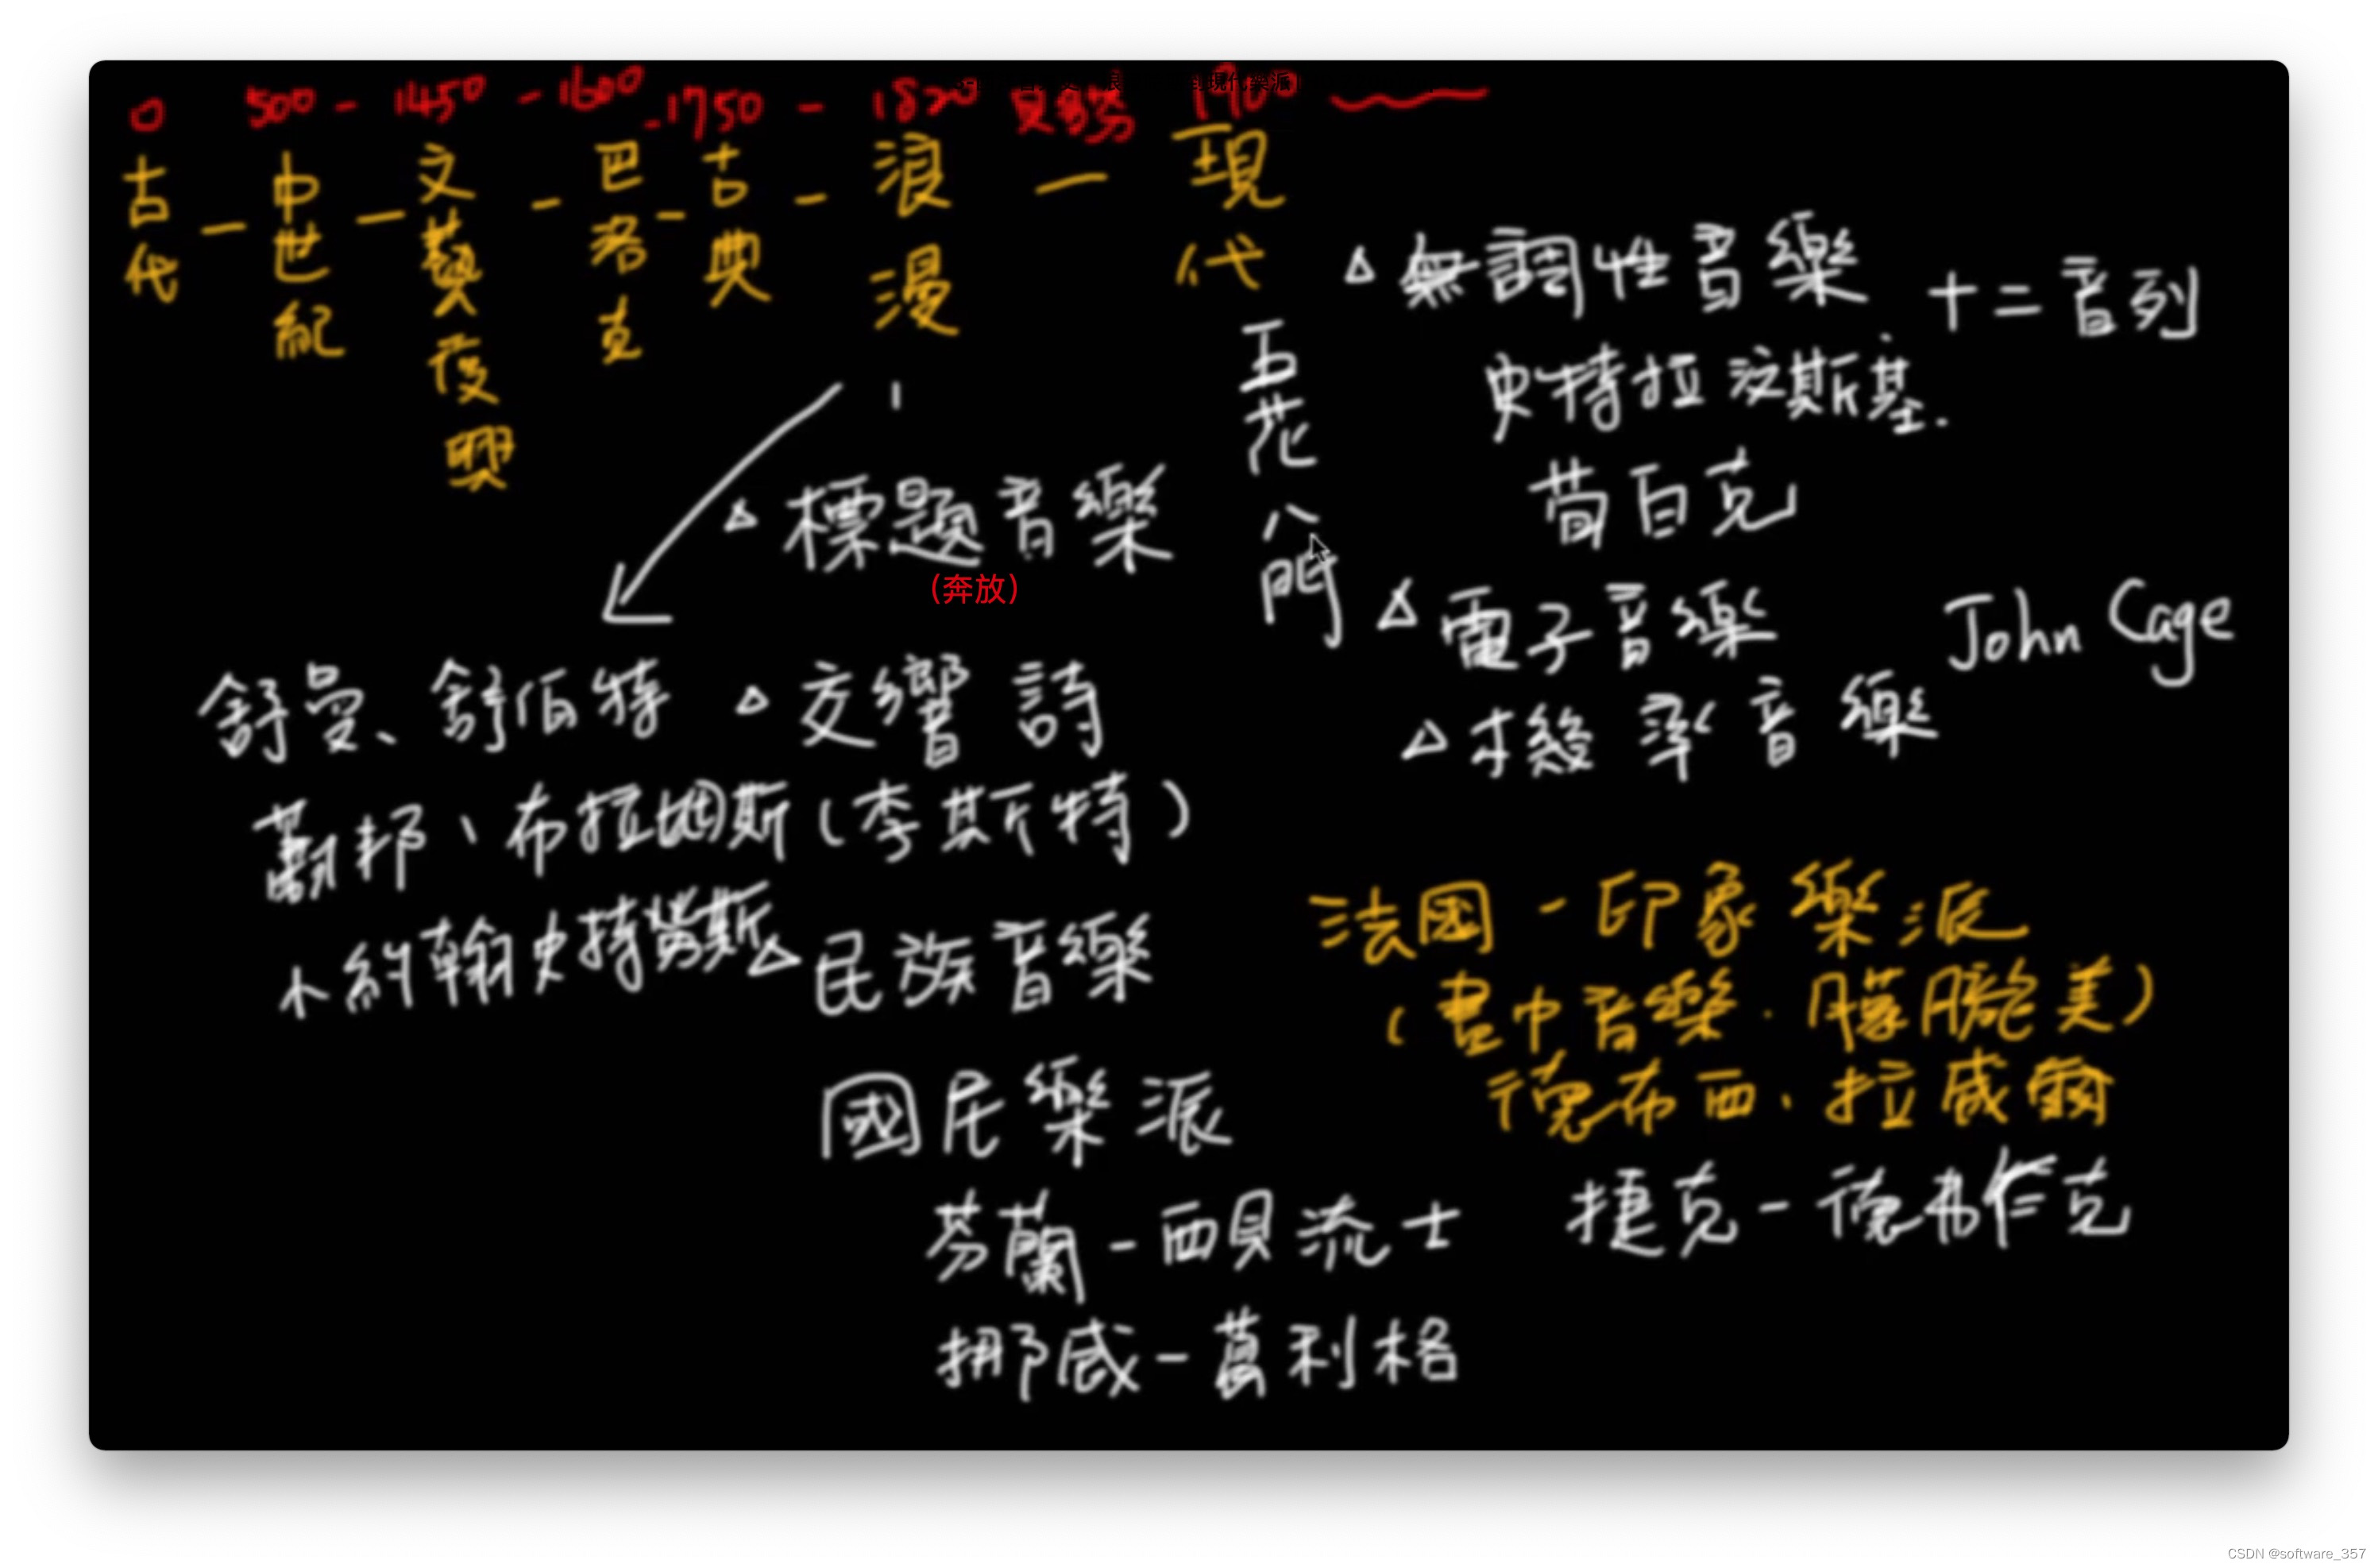 0 500 - 1450 - 1600 - 1750 - 1820 貝多芬 1900
古代 - 中世紀 - 文藝復興 - 巴洛克 - 古典 - 浪漫 - 現代
五花八門
△ 無調性音樂 十二音列
史特拉汶斯基.
荀白克
△ 電子音樂 John Cage
△ 機率音樂
△ 標題音樂
(奔放)
舒曼、舒伯特 △ 交響詩
蕭邦、布拉姆斯 (李斯特)
小約翰史特勞斯 △ 民族音樂
國民樂派
芬蘭 - 西貝流士 捷克 - 德弗乍克
挪威 - 葛利格
法國 - 印象樂派
(畫中音樂．朦朧美)
德布西、拉威爾
CSDN @software_357